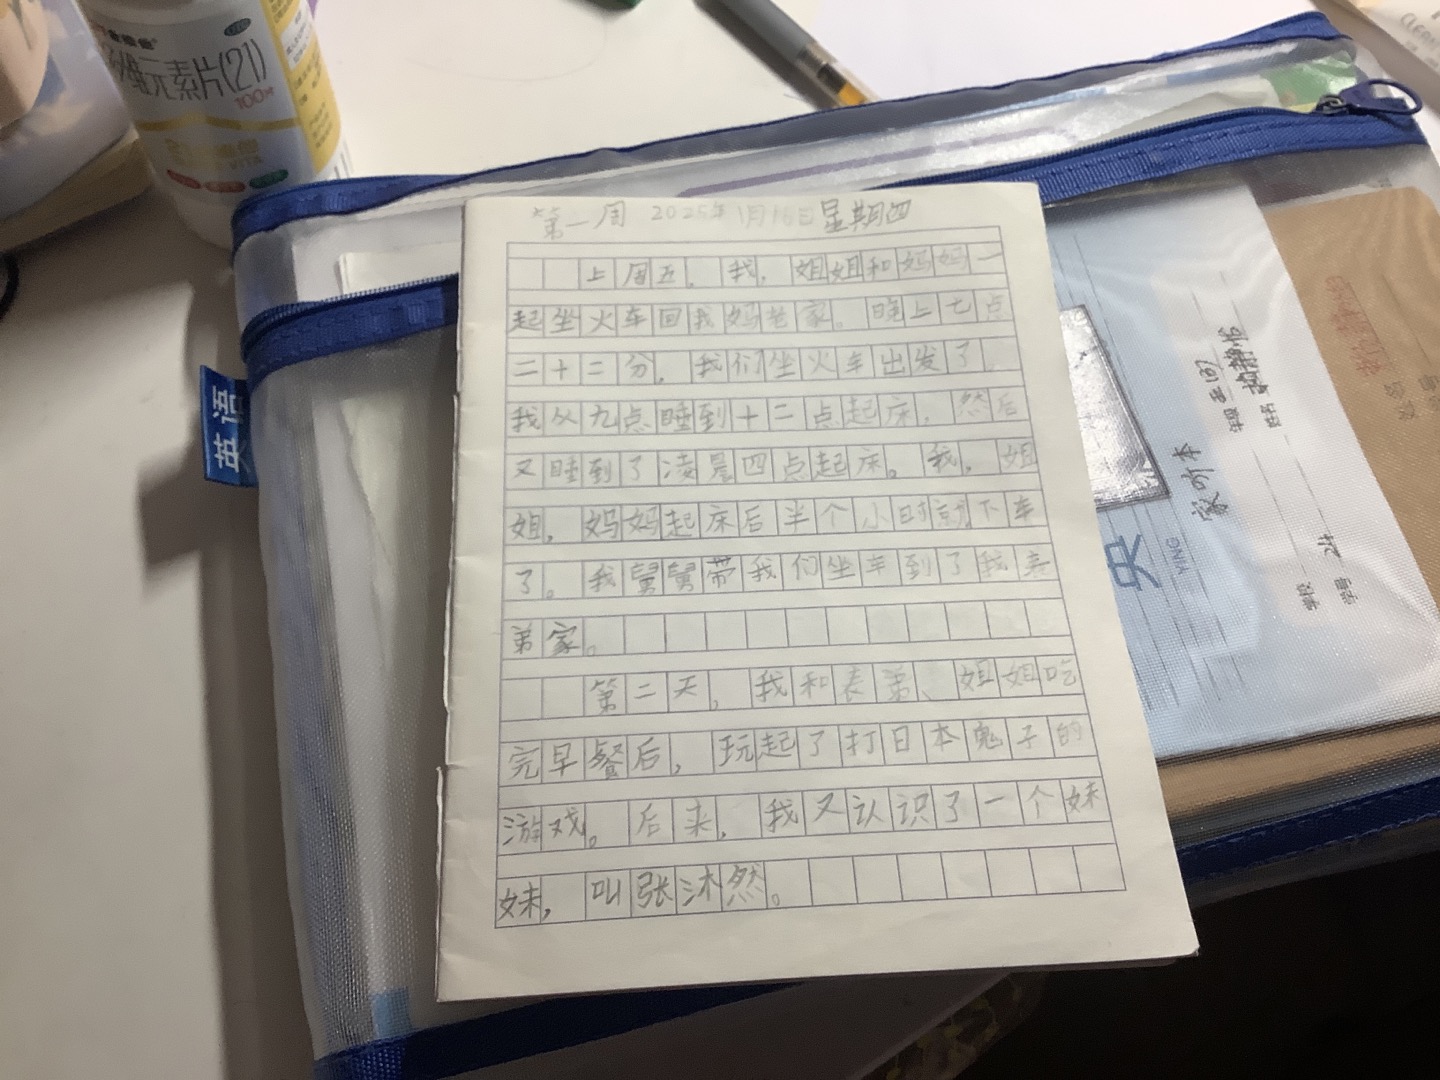 元素片(21)
100片
英语
第一周 2025年1月16日星期四
上周五，我，姐姐和妈妈一
起坐火车回我妈老家。晚上七点
二十二分，我们坐火车出发了
我从九点睡到十二点起床，然后
又睡到了凌晨四点起床。我，姐
姐，妈妈起床后半个小时就下车
了。我舅舅带我们坐车到了我表
弟家。
第二天，我和表弟、姐姐吃
完早餐后，玩起了打日本鬼子的
游戏。后来，我又认识了一个妹
妹，叫张沐然。
家听本
英
YING
学校
姓名
学号 24